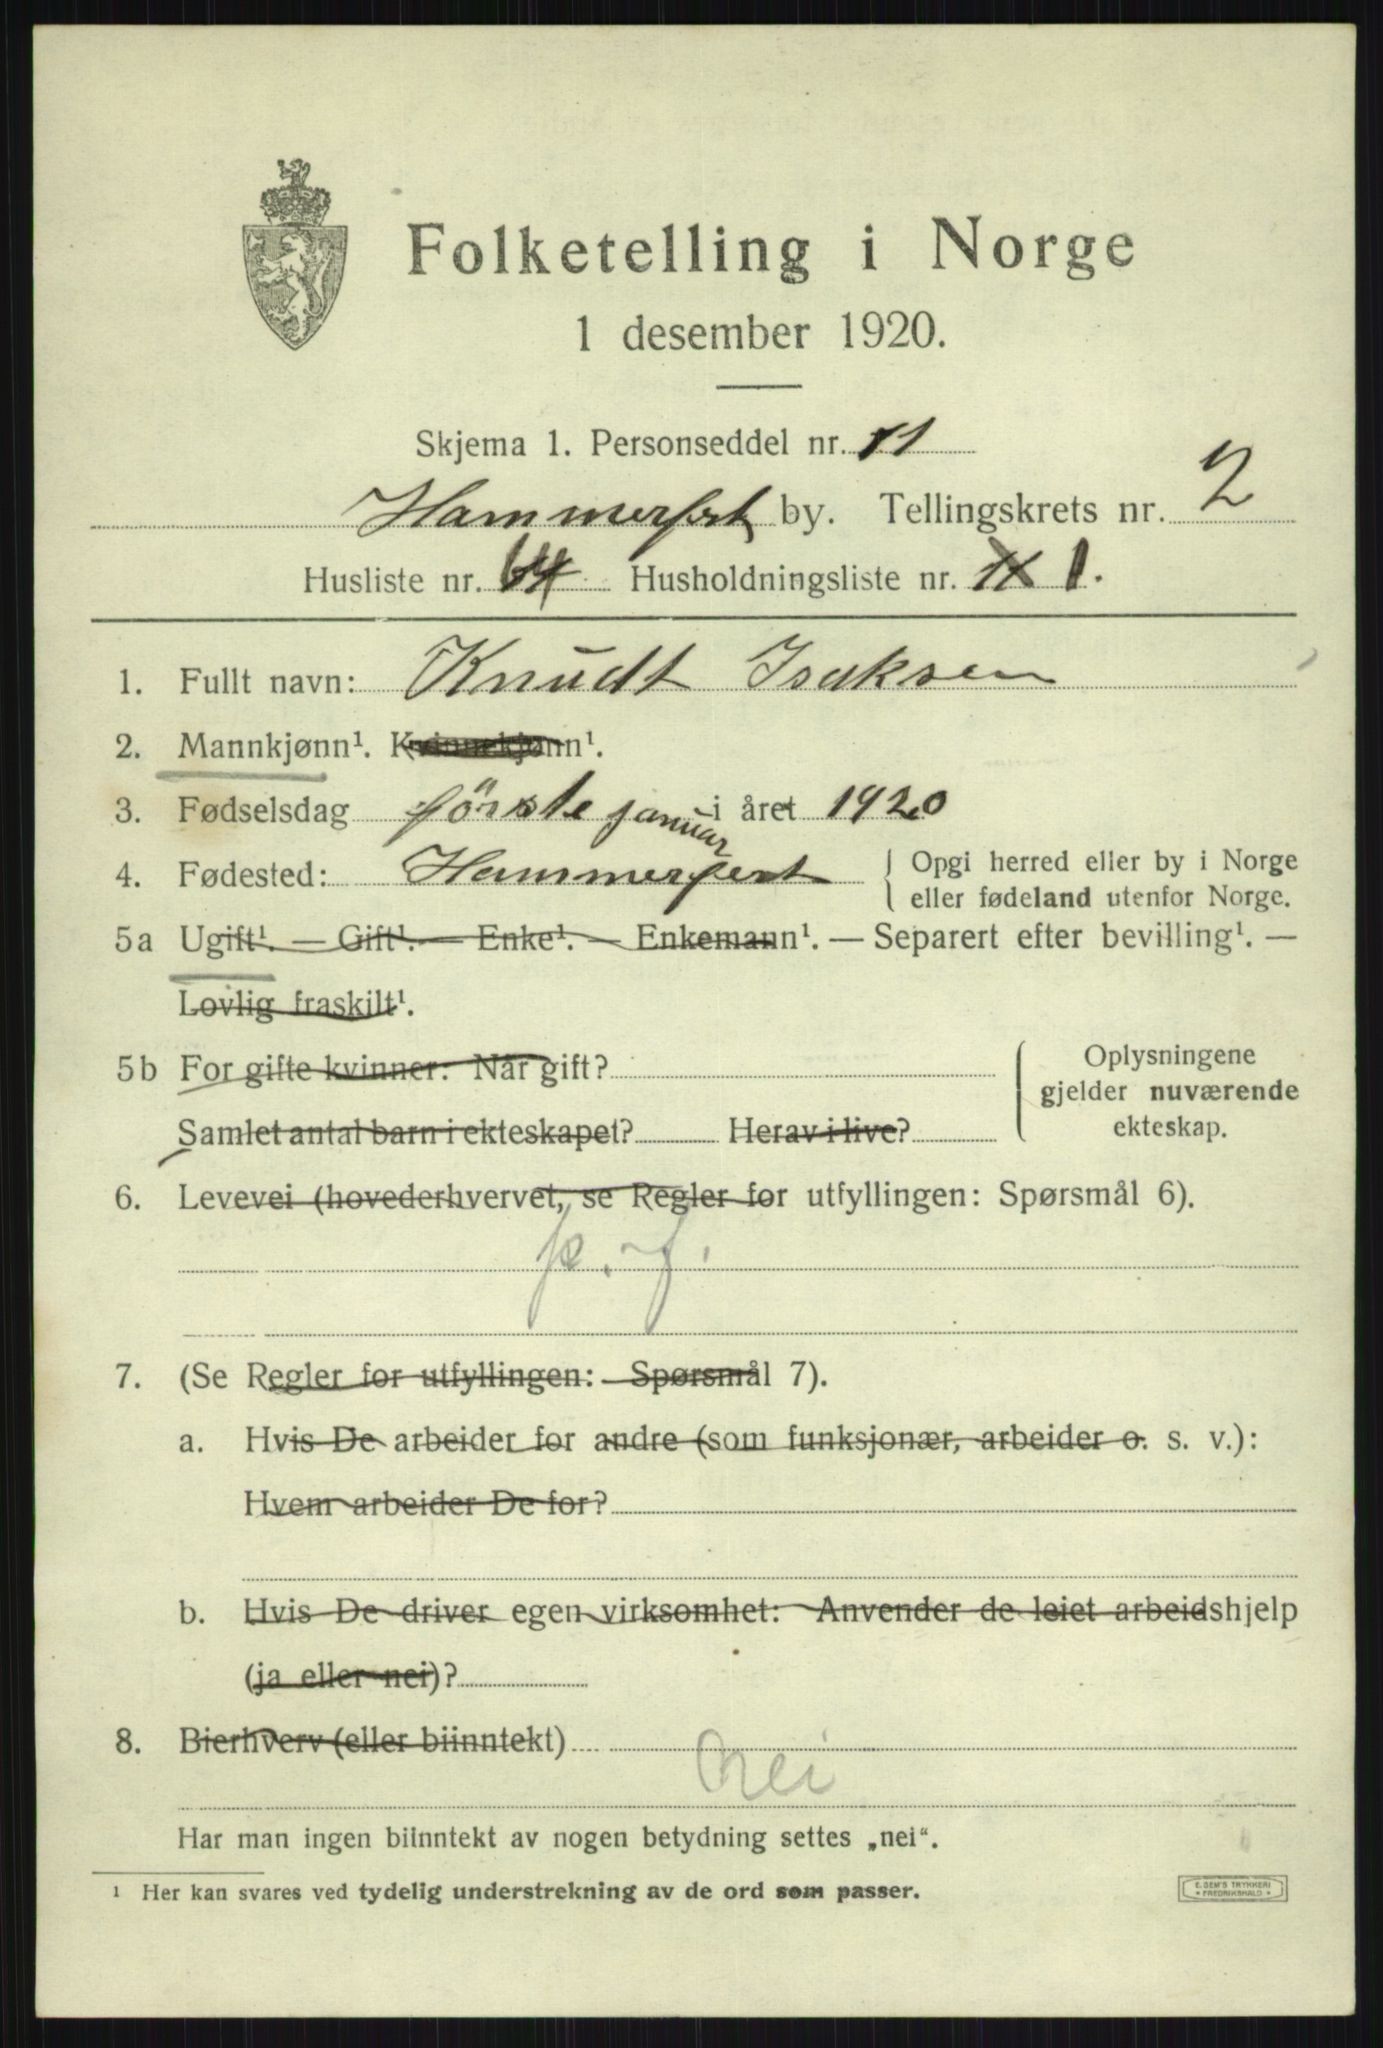 Folketelling i Norge
1 desember 1920.
Skjema 1. Personseddel nr. 11
Hammerfest by. Tellingskrets nr. 2
Husliste nr. Husholdningsliste nr. 1.
1. Fullt navn: Knudt Isaksen
2. Mannkjønn¹. Kvinnekjønn¹.
3. Fødselsdag første januar i året 1920
4. Fødested: Hammerfest { Opgi herred eller by i Norge
eller fødeland utenfor Norge.
5a Ugift¹. — Gift¹. — Enke¹. — Enkemann¹. — Separert efter bevilling¹. —
Lovlig fraskilt¹.
5b For gifte kvinner: Når gift? { Oplysningene
gjelder nuværende
Samlet antal barn i ekteskapet? Herav i live? ekteskap.
6. Levevei (hovederhvervet, se Regler for utfyllingen: Spørsmål 6).
7. (Se Regler for utfyllingen: Spørsmål 7).
a. Hvis De arbeider for andre (som funksjonær, arbeider o. s. v.):
Hvem arbeider De for?
b. Hvis De driver egen virksomhet: Anvender de leiet arbeidshjelp
(ja eller nei)?
8. Bierhverv (eller biinntekt)
nei
Har man ingen biinntekt av nogen betydning settes „nei“.
¹ Her kan svares ved tydelig understrekning av de ord som passer.
E. SEM'S TRYKKERI
* FREDRIKSHALD *